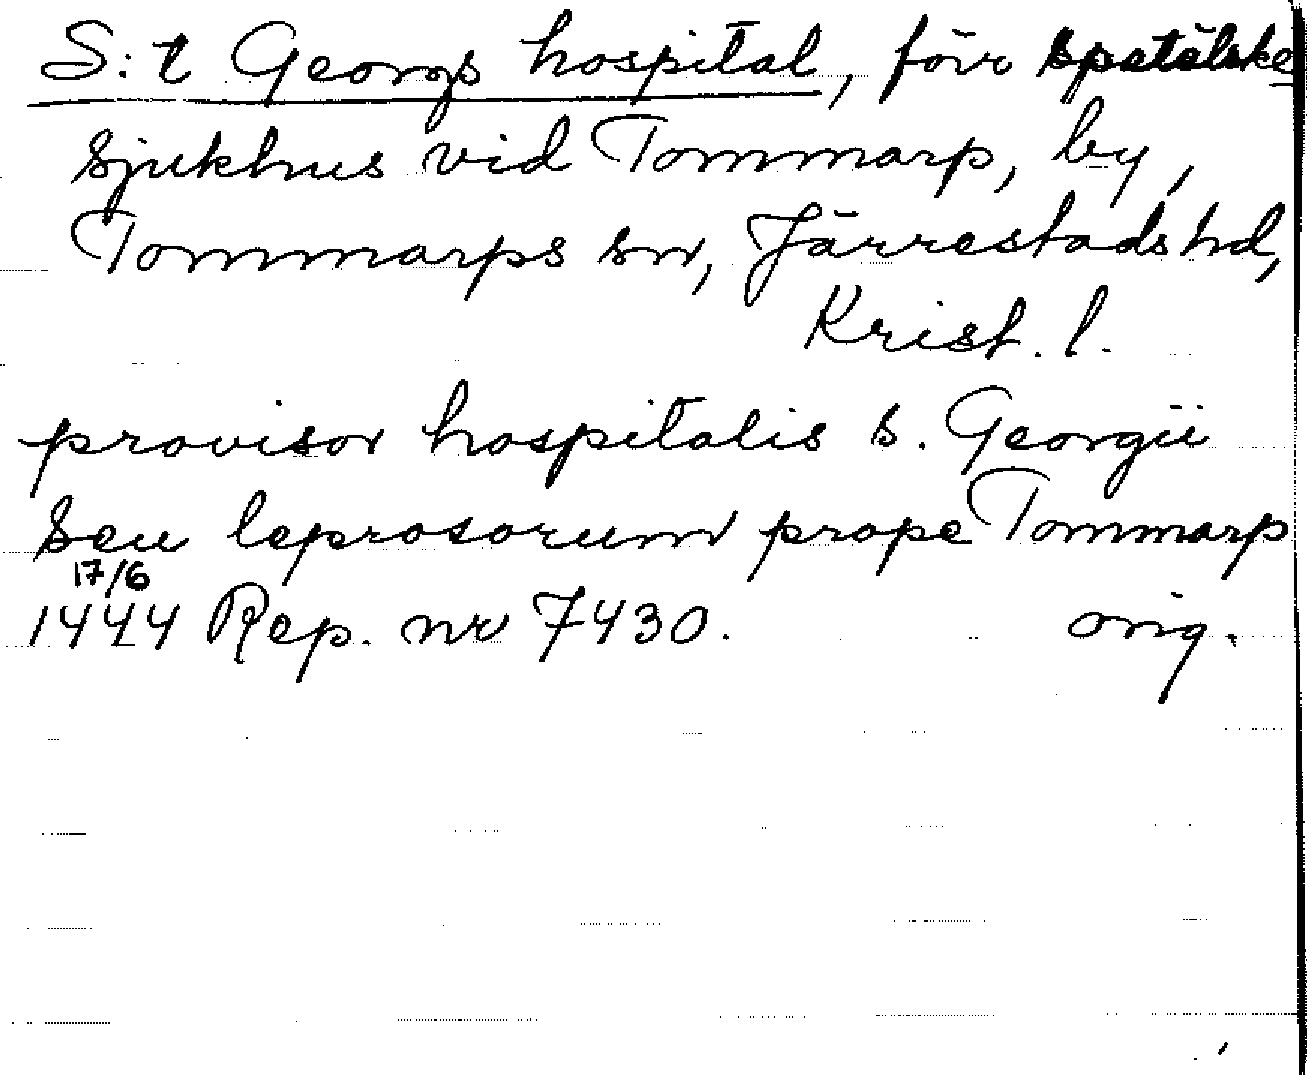 S:t Georgs hospital, förr spetälske
sjukhus vid Tommarp, by,
Tommarps sn, Järrestads hd,
Krist. l.
provisor hospitalis s. Georgii
seu leprosorum prope Tommarp
17/6
1444 Rep. nr 7430. orig.